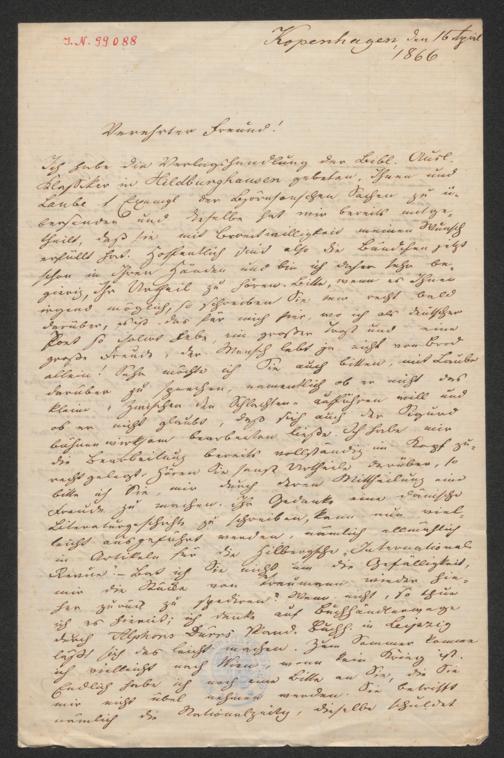 I.N. 99088
Kopenhagen, den 16 April
1866
Verehrter Freund!
Ich habe die Verlagshandlung der Bibl. Ausl.
Klassiker in Hildburghausen gebeten, Ihnen und
Laube 1 Exempl der Björnsonschen Sachen zu ü-
bersenden und dieselbe hat mir bereits mitge-
theilt, daß sie mit Bereitwilligkeit meinen Wunsch
erfüllt hat. Hoffentlich sind also die Bändchen jetzt
schon in Ihren Händen und bin ich daher sehr be-
gierig, Ihr Urtheil zu hören. Bitte, wenn es Ihnen
irgend möglich, so schreiben Sie mir recht bald
darüber, ist das für mich hier, wo ich als deutscher
Poet so lebe, ein großer Trost und eine
große Freude; der Mensch lebt ja nicht von Brod
allein! Sehr möchte ich Sie auch bitten, mit Laube
darüber zu sprechen, namentlich ob er nicht das
kleine "Zwischen den Schlachten" aufführen will und
ob er nicht glaubt, daß sich auch der Sigurd
bühnenwirksam bearbeiten ließe. Ich habe mir
die Bearbeitung bereits vollständig im Kopf zu-
recht gelegt. Hören Sie sonst Urtheile darüber, so
bitte ich Sie, mir durch deren Mittheilung eine
Freude zu machen. Ihr Gedanke eine dänische
Literaturgeschichte zu schreiben, kann mir viel-
leicht ausgeführt werden, nämlich allmählich
in Artikeln für die Hilbergsche "Internationale
Revue". – Bat ich Sie nicht um die Gefälligkeit,
mir die Stücke von wieder hie-
her zurück zu spediren? Wenn nicht, so thue
ich es hiermit; ich denke auf Buchhändlerwege
durch Alphons Dürrs Skand. Buchh. in Leipzig
läßt sich das leicht machen. Zum Sommer komme
ich vielleicht nach Wien, wenn kein Krieg ist.
Endlich habe ich noch eine Bitte an Sie, die Sie
mir nicht übel nehmen werden. Sie betrifft
nämlich die Nationalzeitung, dieselbe schuldet